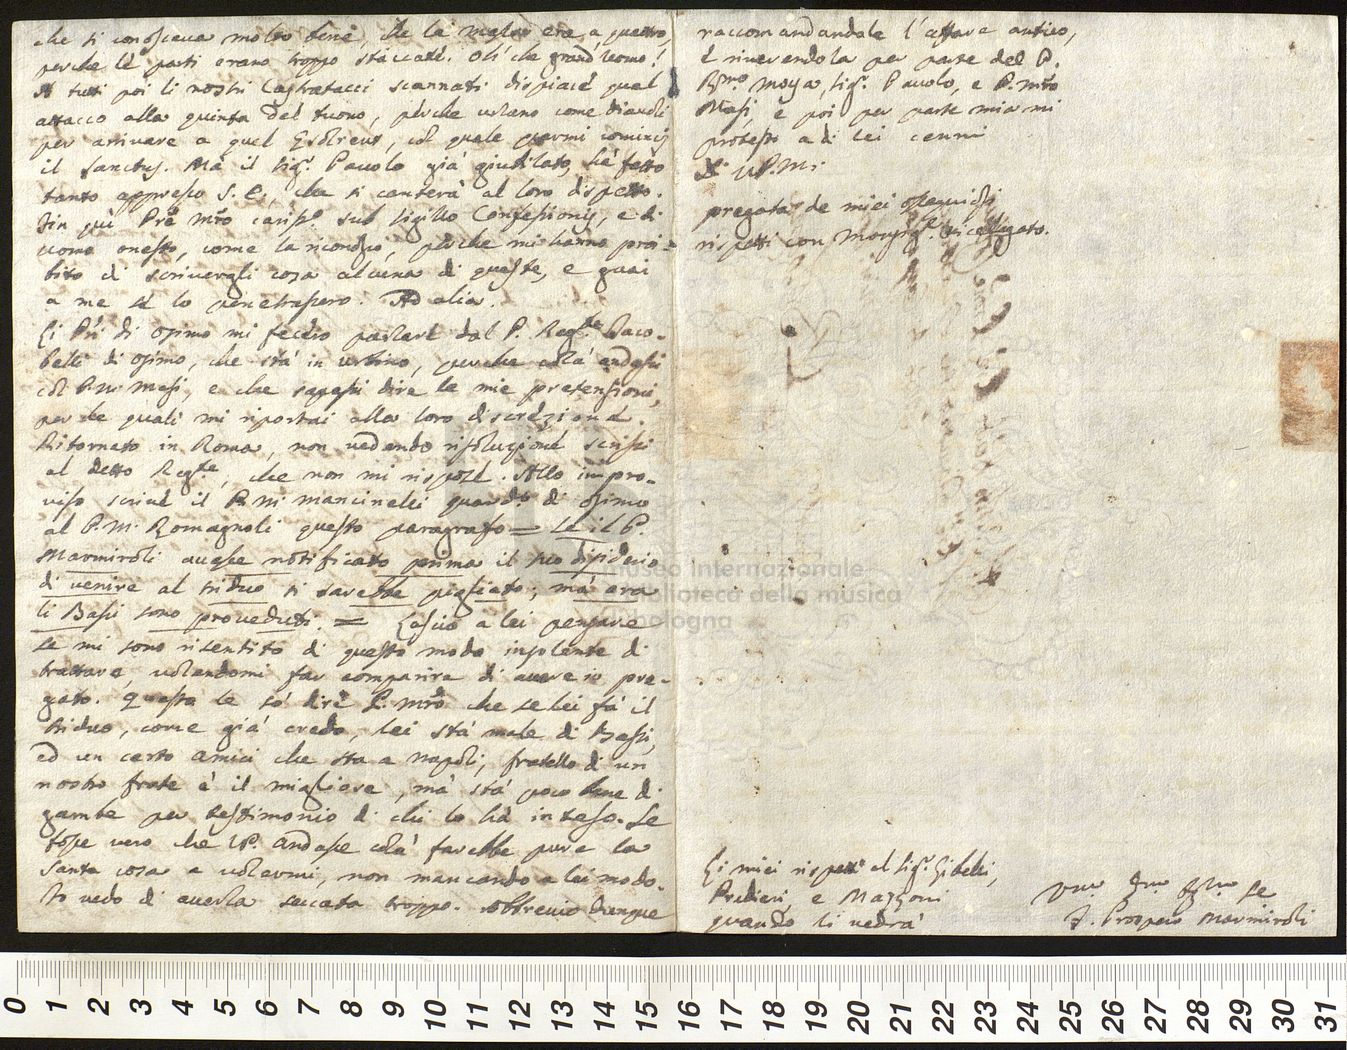 che si conosceva molto bene, che la messa era a quattro,
perche le parti erano troppo staccate. Oh che grand'uomo!
A tutti poi li nostri Castratacci scannati dispiace quel
attacco alla quinta del tuono, perche urlano come diavoli
per arrivare a quel Excelsus, col quale parmi cominci
il Sanctus. Mà il Sig.r Pavolo già giubilato, hà fatto
tanto appresso S. E., che si canterà al loro dispetto.
Sin quì Pre Mro cariss.o sub sigillo Confessionis, e di
uomo onesto, come la riconosco, perche mi hanno proi-
bito di scrivergli cosa alcuna di queste, e guai
a me se lo penetrassero. Ad alia.
Li Pri di Osimo mi fecero parlare dal P. Regte Jaco-
belli di Osimo, che stà in Urbino, perche colà andassi
col P. M. Masi, e che sapessi dire le mie pretensioni,
per le quali mi riportai alla loro discrezione.
Ritornato in Roma, non vedendo risoluzione scrissi
al detto Regte, che non mi rispose. All'impro-
viso scrive il P. M. Mancinelli guard.o di Osimo
al P. M. Romagnoli questo paragrafo = Se il P.
Marmiroli avesse notificato prima il suo desiderio
di venire al triduo si sarebbe pigliato, mà ora
li Bassi sono proveduti = Lascio a lei pensare
se mi sono risentito di questo modo insolente di
trattare, volendomi far comparire di avere io pre-
gato. Questa le sò dire P. Mro che se lei fà il
triduo, come già credo, lei stà male di Bassi,
ed un certo Amici che sta a Napoli, fratello di un
nostro frate è il migliore, mà stà poco bene di
gambe per testimonio di chi lo hà inteso. Se
fosse vero che V.P. andasse colà farebbe pure la
santa cosa a volermi, non mancando a lei modo.
Mi vedo di averla seccata troppo. Abbrevio dunque
raccomandandole l'affare antico,
e riverendola per parte del P.
Rmo Moya, Sig.r Pavolo, e P. Mro
Masi, e poi per parte mia mi
protesto a di lei cenni
Di V.P.M.
pregata de miei ossequiosi
rispetti con Monsig.r
Li miei rispetti al Sig.r Gibelli,
Predieri, e Mazzoni
quando li vedrà
F. Prospero Marmiroli
museo internazionale
e biblioteca della musica
di bologna
0 1 2 3 4 5 6 7 8 9 10 11 12 13 14 15 16 17 18 19 20 21 22 23 24 25 26 27 28 29 30 31